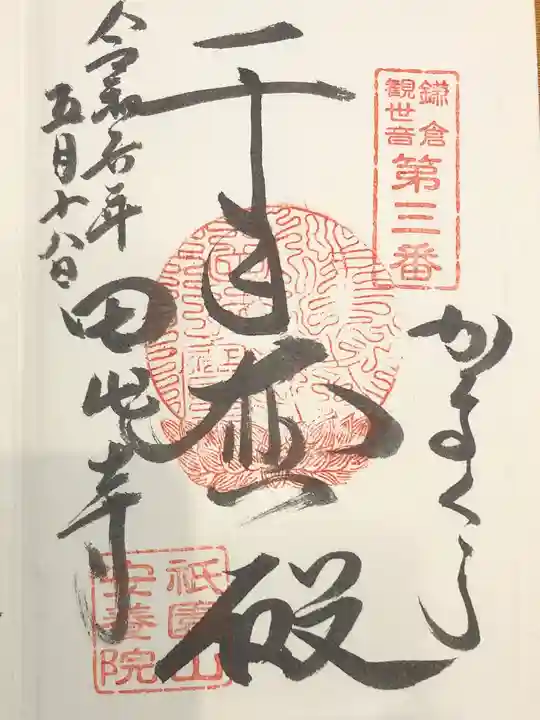 鎌倉
観世音
第三番
かまくら
千手 殿
令和 年
五月十八日
田代寺
祇園山
安養院